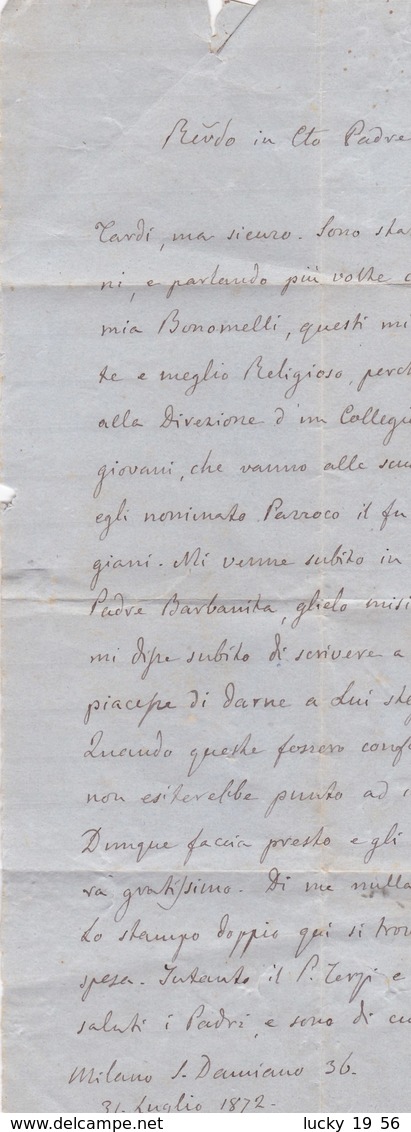 Reṽdo in Cto Padre
Tardi, ma sicuro. Sono sta
ni, e parlando più volte c
mia Bonomelli, questi mi
te e meglio Religioso, perch
alla Direzione d'un Collegi
giovani, che vanno alle scu
egli nominato Parroco il fu
giani. Mi venne subito in
Padre Barbanita, glielo misi
mi disse subito di scrivere a
piacesse di darne a Lui
Quando queste fossero conf
non esiterebbe punto ad
Dunque faccia presto e gli
rà gratissimo. Di me nulla
Lo stampo doppio qui si trov
spesa. Intanto il P. Terzi e
saluti i Padri, e sono di cu
Milano S. Damiano 36.
31. Luglio 1872.
lucky 19 56